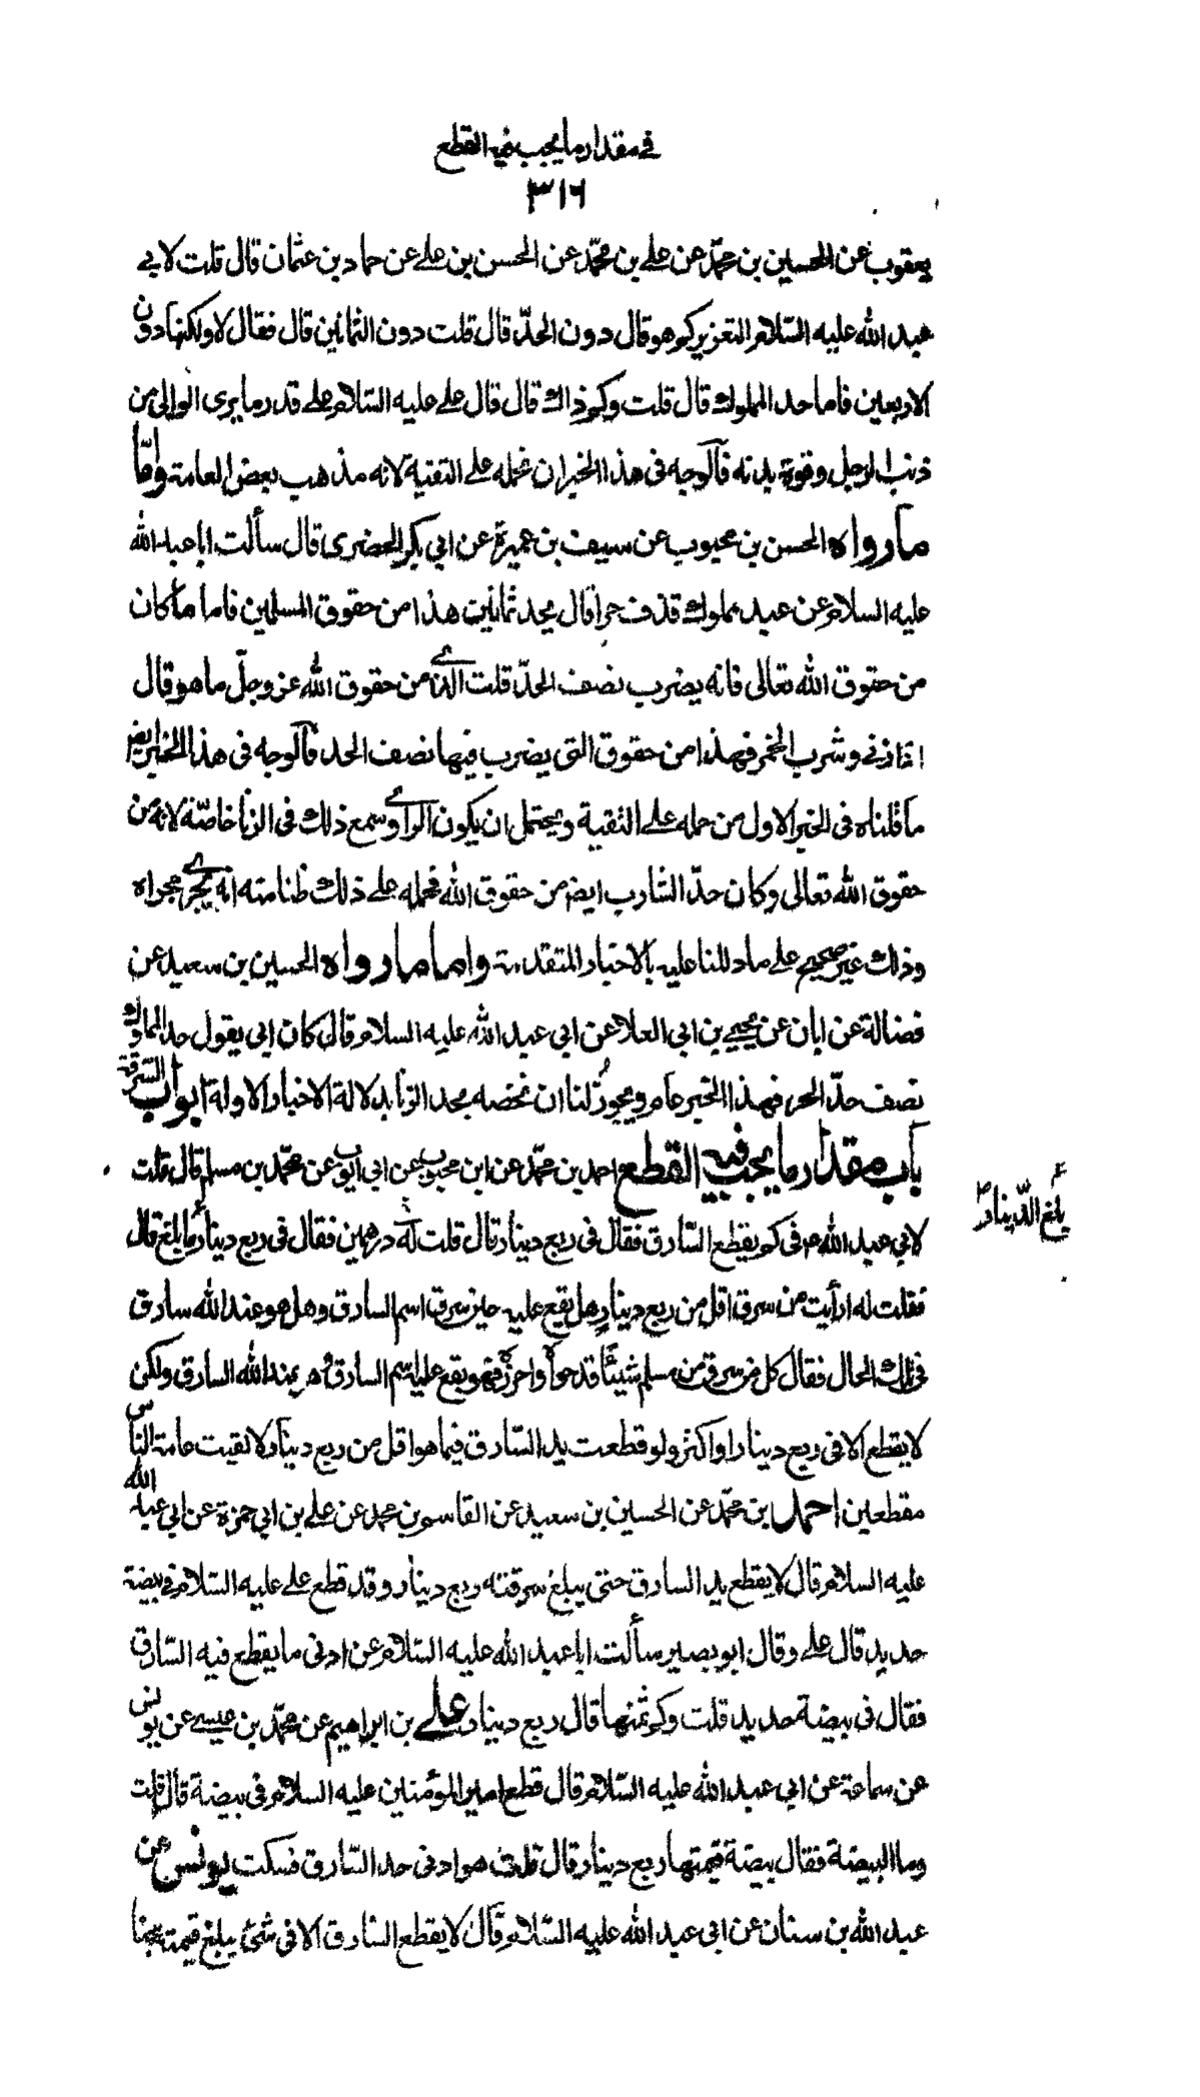 في مقدار ما يجب فيه القطع
٣١٦
يعقوب عن الحسين بن محمّد عن علي بن محمّد عن الحسن بن علي عن حماد بن عثمان قال قلت لابي
عبد الله عليه السّلام التعزير كم هو قال دون الحدّ قال قلت دون الثمانين قال فقال لا ولكنها دون
الاربعين فانها حد المملوك قال قلت وكم ذاك قال قال علي عليه السّلام علي قدر ما يرى الوالي من
ذنب الرجل وقوة بدنه فالوجه في هذا الخبر ان نحمله علي التقية لانه مذهب بعض العامة وامّا
ما رواه الحسن بن محبوب عن سيف بن عميرة عن ابي بكر الحضرمي قال سألت ابا عبد الله
عليه السلام عن عبد مملوك قذف حرا قال يجلد ثمانين هذا من حقوق المسلمين فاما ما كان
من حقوق الله تعالى فانه يضرب نصف الحدّ قلت الذي من حقوق الله عز وجلّ ما هو قال
اذا زني وشرب الخمر فهذا من حقوق التي يضرب فيها نصف الحد فالوجه في هذا الخبر ايض
ما قلناه في الخبر الاول من حمله علي التقية ويحتمل ان يكون الراوي سمع ذلك في الزنا خاصّة لانه من
حقوق الله تعالى وكان حدّ الشارب ايض من حقوق الله فحمله علي ذلك ظنا منه انه يجري مجراه
وذلك غير صحيح علي ما دللنا عليه بالاخبار المتقدمة واما ما رواه الحسين بن سعيد عن
فضالة عن ابان عن يحيي بن ابي العلا عن ابي عبد الله عليه السلام قال كان ابي يقول حد المملوك
نصف حدّ الحر فهذا الخبر عام ويجوز لنا ان نخصه بحد الزنا بدلالة الاخبار الاولة ابواب السّرقة
باب مقدار ما يجب فيه القطع احمد بن محمّد عن ابن محبوب عن ابي ايوب عن محمّد بن مسلم قال قلت
لابي عبد الله م في كم يقطع السّارق فقال في ربع دينار قال قلت له درهمين فقال في ربع دينار ما بلغ قال
يلغ الدّينار
فقلت له ارأيت من سرق اقل من ربع دينار هل يقع عليه حين سرق اسم السارق وهل هو عند الله سارق
في تلك الحال فقال كل من سرق من مسلم شيئا قد حواه واحرزه فهو يقع عليه اسم السارق وهو عند الله السارق ولكن
لا يقطع الا في ربع دينار او اكثر ولو قطعت يد السّارق فيما هو اقل من ربع دينار لالقيت عامة النّاس
مقطعين احمد بن محمّد عن الحسين بن سعيد عن القاسم بن محمد عن علي بن ابي حمزة عن ابي عبد الله
عليه السلام قال لا يقطع يد السارق حتى يبلغ سرقته ربع دينار وقد قطع علي عليه السّلام في بيضة
حديد قال علي وقال ابو بصير سألت ابا عبد الله عليه السّلام عن ادنى ما يقطع فيه السّارق
فقال في بيضة حديد قلت وكم ثمنها قال ربع دينار علي بن ابراهيم عن محمّد بن عيسي عن يونس
عن سماعة عن ابي عبد الله عليه السّلام قال قطع امير المؤمنين عليه السلام في بيضة قال قلت
وما البيضة فقال بيضة قيمتها ربع دينار قال قلت هو ادنى حد السّارق فسكت يونس عن
عبد الله بن سنان عن ابي عبد الله عليه السّلام قال لا يقطع السّارق الا في شئ يبلغ قيمته مجنا